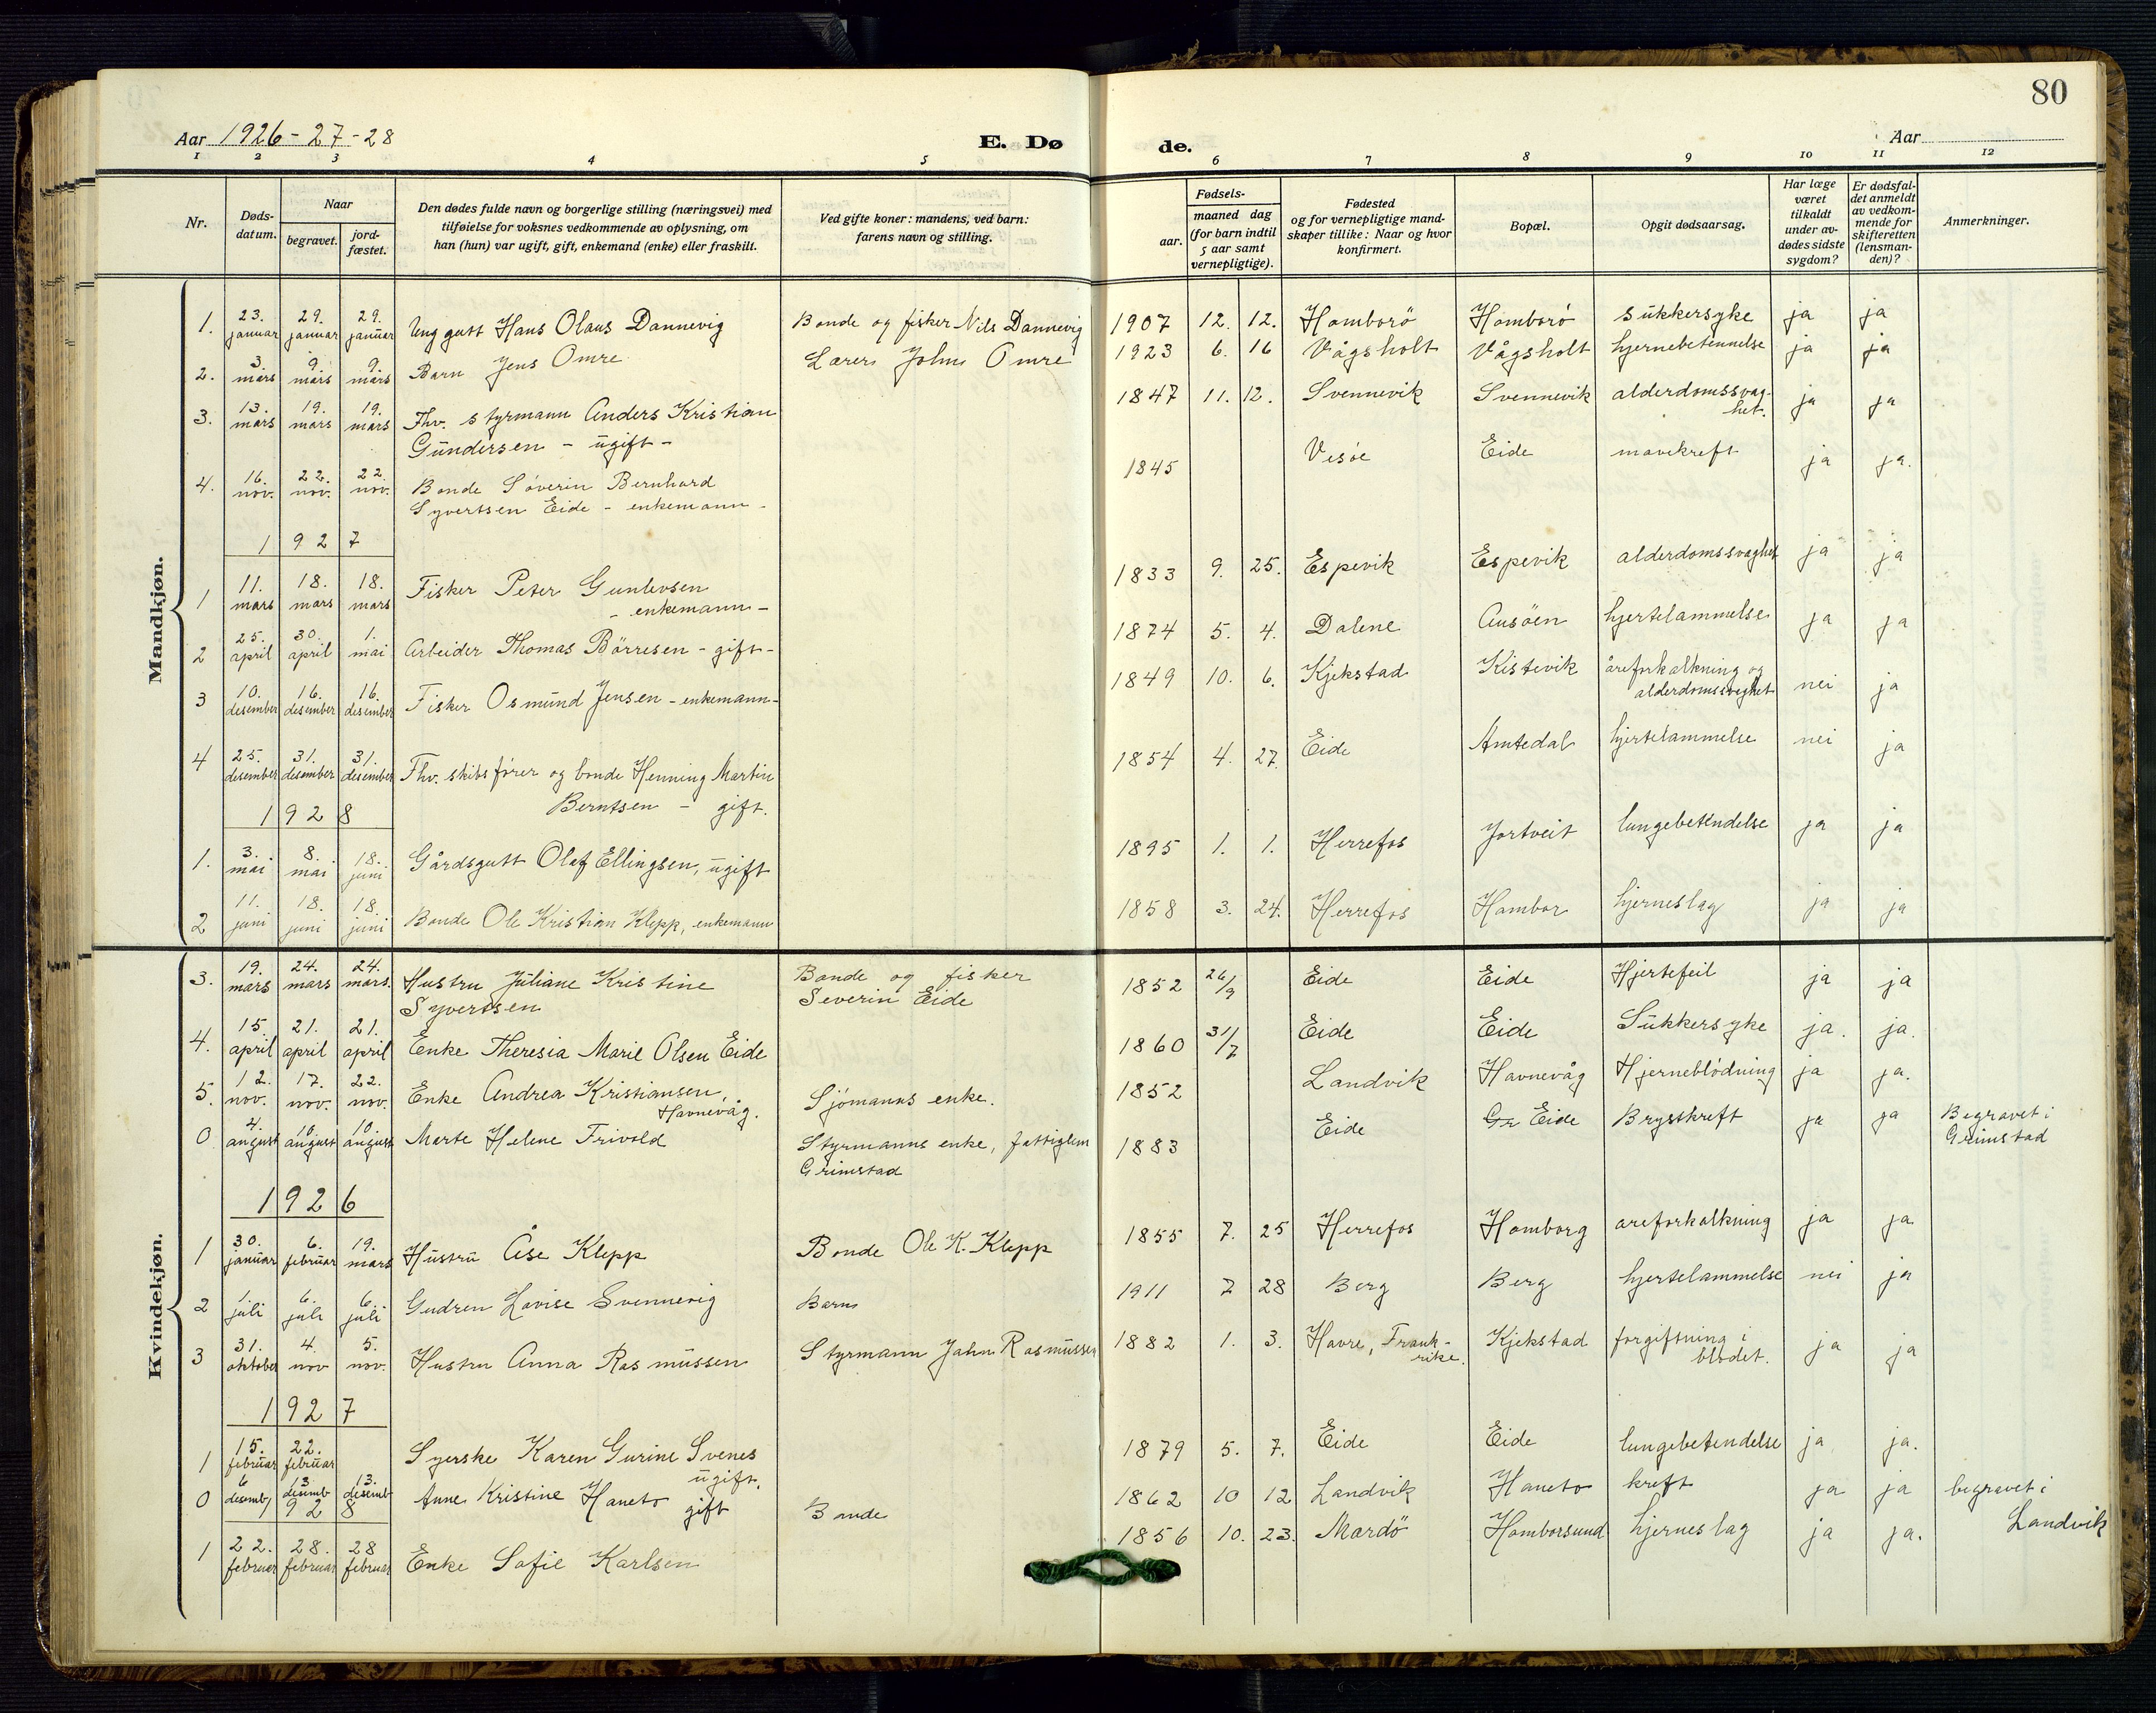 80
Aar 1926-27-28
E. Dø
de.
Aar
1 2 3 4 5 6 7 8 9 10 11 12
Nr.
Døds-
datum.
Naar
begravet.
jord-
fæstet.
Den dødes fulde navn og borgerlige stilling (næringsvei) med
tilføielse for voksnes vedkommende av oplysning, om
han (hun) var ugift, gift, enkemand (enke) eller fraskilt.
Ved gifte koner: mandens, ved barn:
farens navn og stilling.
Fødsels-
aar.
maaned dag
(for barn indtil
5 aar samt
vernepligtige).
Fødested
og for vernepligtige mand-
skaper tillike: Naar og hvor
konfirmert.
Bopæl.
Opgit dødsaarsag.
Har læge
været
tilkaldt
under av-
dødes sidste
sygdom?
Er dødsfal-
det anmeldt
av vedkom-
mende for
skifteretten
(lensman-
den)?
Anmerkninger.
Mandkjøn.
1. 23. januar 29. januar 29. januar Ung gutt Hans Olaus Dannevig Bonde og fisker Nils Dannevig 1907 12. 12. Homborö Homborö sukkersyke ja ja
2. 3. mars 9. mars 9. mars Barn Jens Omre Lærer John Omre 1923 6. 16 Vågsholt Vågsholt hjernebetennelse ja ja
3. 13. mars 19. mars 19. mars Fhv. styrmann Anders Kristian 1847 11. 12. Svennevik Svennevik alderdomssvag-
het. ja ja
Gundersen - ugift -
4. 16. nov. 22. nov. 22. nov. Bonde Söverin Bernhard 1845 Vesöe Eide mavekreft ja ja.
Syvertsen Eide - enkemann -
1927
1 11. mars 18. mars 18. mars Fisker Peter Gunlevsen 1833 9. 25. Espevik Espevik alderdomssvaghet ja ja
- enkemann -
2 25. april 30. april 1. mai Arbeider Thomas Börresen - gift - 1874 5. 4. Dalene Ausöen hjertelammelse ja ja
3 10. desember 16. desember 16. desember Fisker Osmund Jensen - enkemann - 1849 10. 6. Kjekstad Kistevik åreforkalkning og
alderdomssvaghet nei ja
4 25. desember 31. desember 31. desember Fhv. skibsförer og bonde Henning Martin 1854 4. 27. Eide Amtedal hjertelammelse nei ja
Berntsen - gift.
1928
1. 3. mai 8. mai 18. juni Gårdsgutt Olaf Ellingsen, ugift 1895 1. 1. Herrefos Jortveit lungebetendelse ja ja
2 11. juni 18. juni 18. juni Bonde Ole Kristian Klepp, enkemann 1858 3. 24. Herrefos Hombor hjerneslag ja ja
Kvindekjøn.
3. 19. mars 24. mars 24. mars. Hustru Juliane Kristine Bonde og fisker 1852 26/9 Eide Eide Hjertefeil ja ja
Syvertsen Severin Eide
4. 15. april 21. april 21. april Enke Theresia Marie Olsen Eide 1860 31/7 Eide Eide Sukkersyke ja. ja.
5. 12. nov. 17. nov. 22. nov. Enke Andrea Kristiansen, Sjömanns enke. 1852 Landvik Havnevåg Hjerneblödning ja ja.
Havnevåg.
0 4. august 10. august 10. august Marte Helene Frivold Styrmanns enke, fattiglem 1883 Eide Gr Eide Brystkreft ja ja Begravet i
Grimstad Grimstad
1926
1 30. januar 6. februar 19. mars Hustru Åse Klepp Bonde Ole K. Klepp 1855 7. 25 Herrefos Homborg areforkalkning ja ja
2 1. juli 6. juli 6. juli Gudren Lovise Svennevig Barn 1911 7 28 Berg Berg hjertelammelse nei ja
3 31. oktober 4. nov 5. nov. Hustru Anna Rasmussen Styrmann John Rasmussen 1882 1. 3. Havre, Frank-
rike. Kjekstad forgiftning i
blodet. ja ja
1927
1 15. februar 22. februar Syerske Karen Gurine Svenes 1879 5. 7. Eide Eide lungebetendelse ja ja.
ugift.
0 6 desemb, 13. desemb 13. desemb Anne Kristine Haneto gift Bonde 1862 10 12 Landvik Haneto kreft ja ja begravet i
Landvik
928
1 22. februar 28. februar 28 februar Enke Sofie Karlsen 1856 10. 23. Mardö Homborsund hjerneslag ja ja.